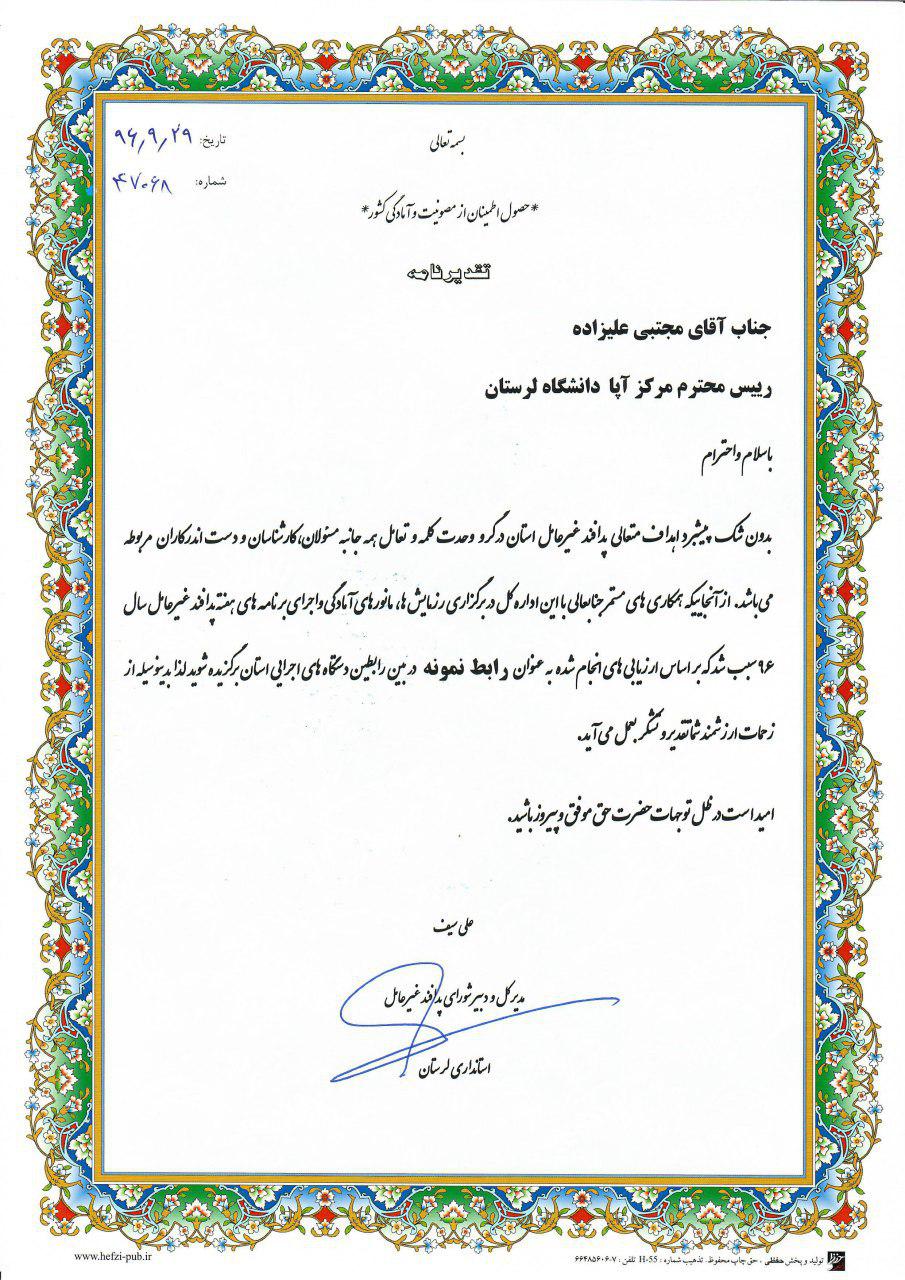 بسمه تعالی
تاریخ: ۹۶٫۹٫۲۹
شماره: ۴۷۰۶۸
*حصول اطمینان از مصونیت و آمادگی کشور*
تقدیرنامه
جناب آقای مجتبی علیزاده
رییس محترم مرکز آپا دانشگاه لرستان
باسلام و احترام
بدون شک پیشبرد اهداف متعالی پدافند غیرعامل استان در گرو وحدت کلمه و تعامل همه جانبه مسئولان، کارشناسان و دست اندرکاران مربوطه
می باشد. از آنجاییکه همکاری های مستمر جنابعالی با این اداره کل در برگزاری رزمایش ها، مانورهای آمادگی و اجرای برنامه های هفته پدافند غیرعامل سال
۹۶ سبب شد که بر اساس ارزیابی های انجام شده به عنوان رابط نمونه در بین رابطین دستگاه های اجرایی استان برگزیده شوید لذا بدینوسیله از
زحمات ارزشمند شما تقدیر و تشکر بعمل می آید.
امید است در ظل توجهات حضرت حق موفق و پیروز باشید.
علی سیف
مدیرکل و دبیر شورای پدافند غیرعامل
استانداری لرستان
www.hefzi-pub.ir
تولید و پخش حفظی ، حق چاپ محفوظ. تذهیب شماره : H-55 تلفن : ۷-۶۶۴۸۵۶۰۶